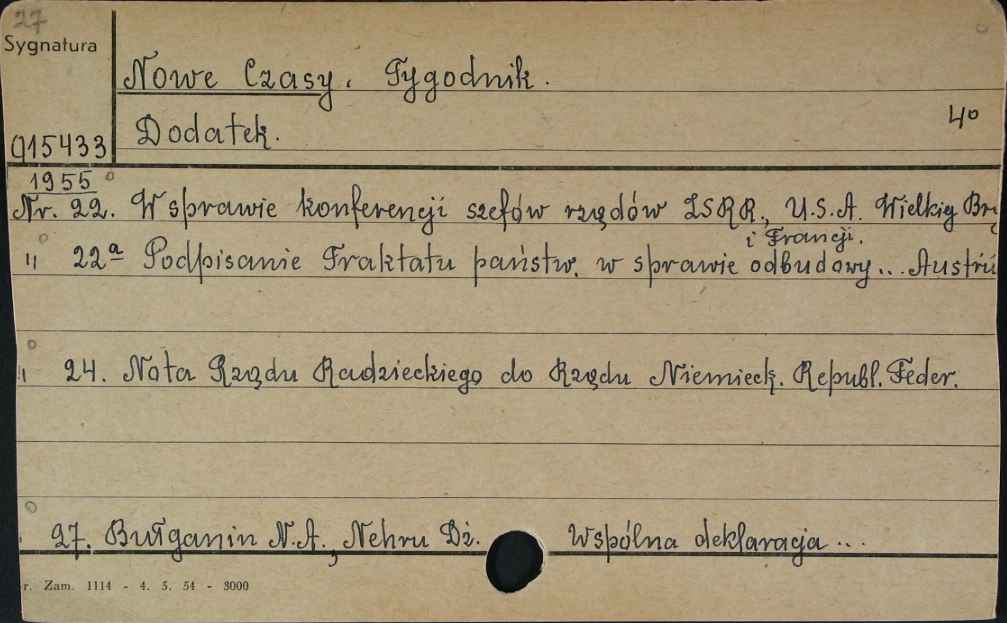 27
Sygnatura
Nowe Czasy. Tygodnik.
Dodatek.
4°
915433
1955
Nr. 22. W sprawie konferencji szefów rządów ZSRR., U.S.A. Wielkiej
i Francji.
" 22a Podpisanie Traktatu państw. w sprawie odbudowy... Austrii
" 24. Nota Rządu Radzieckiego do Rządu Niemieck. Republ. Feder.
27. Bułganin N.A., Nehru Dż. Wspólna deklaracja...
r. Zam. 1114 - 4. 5. 54 - 3000